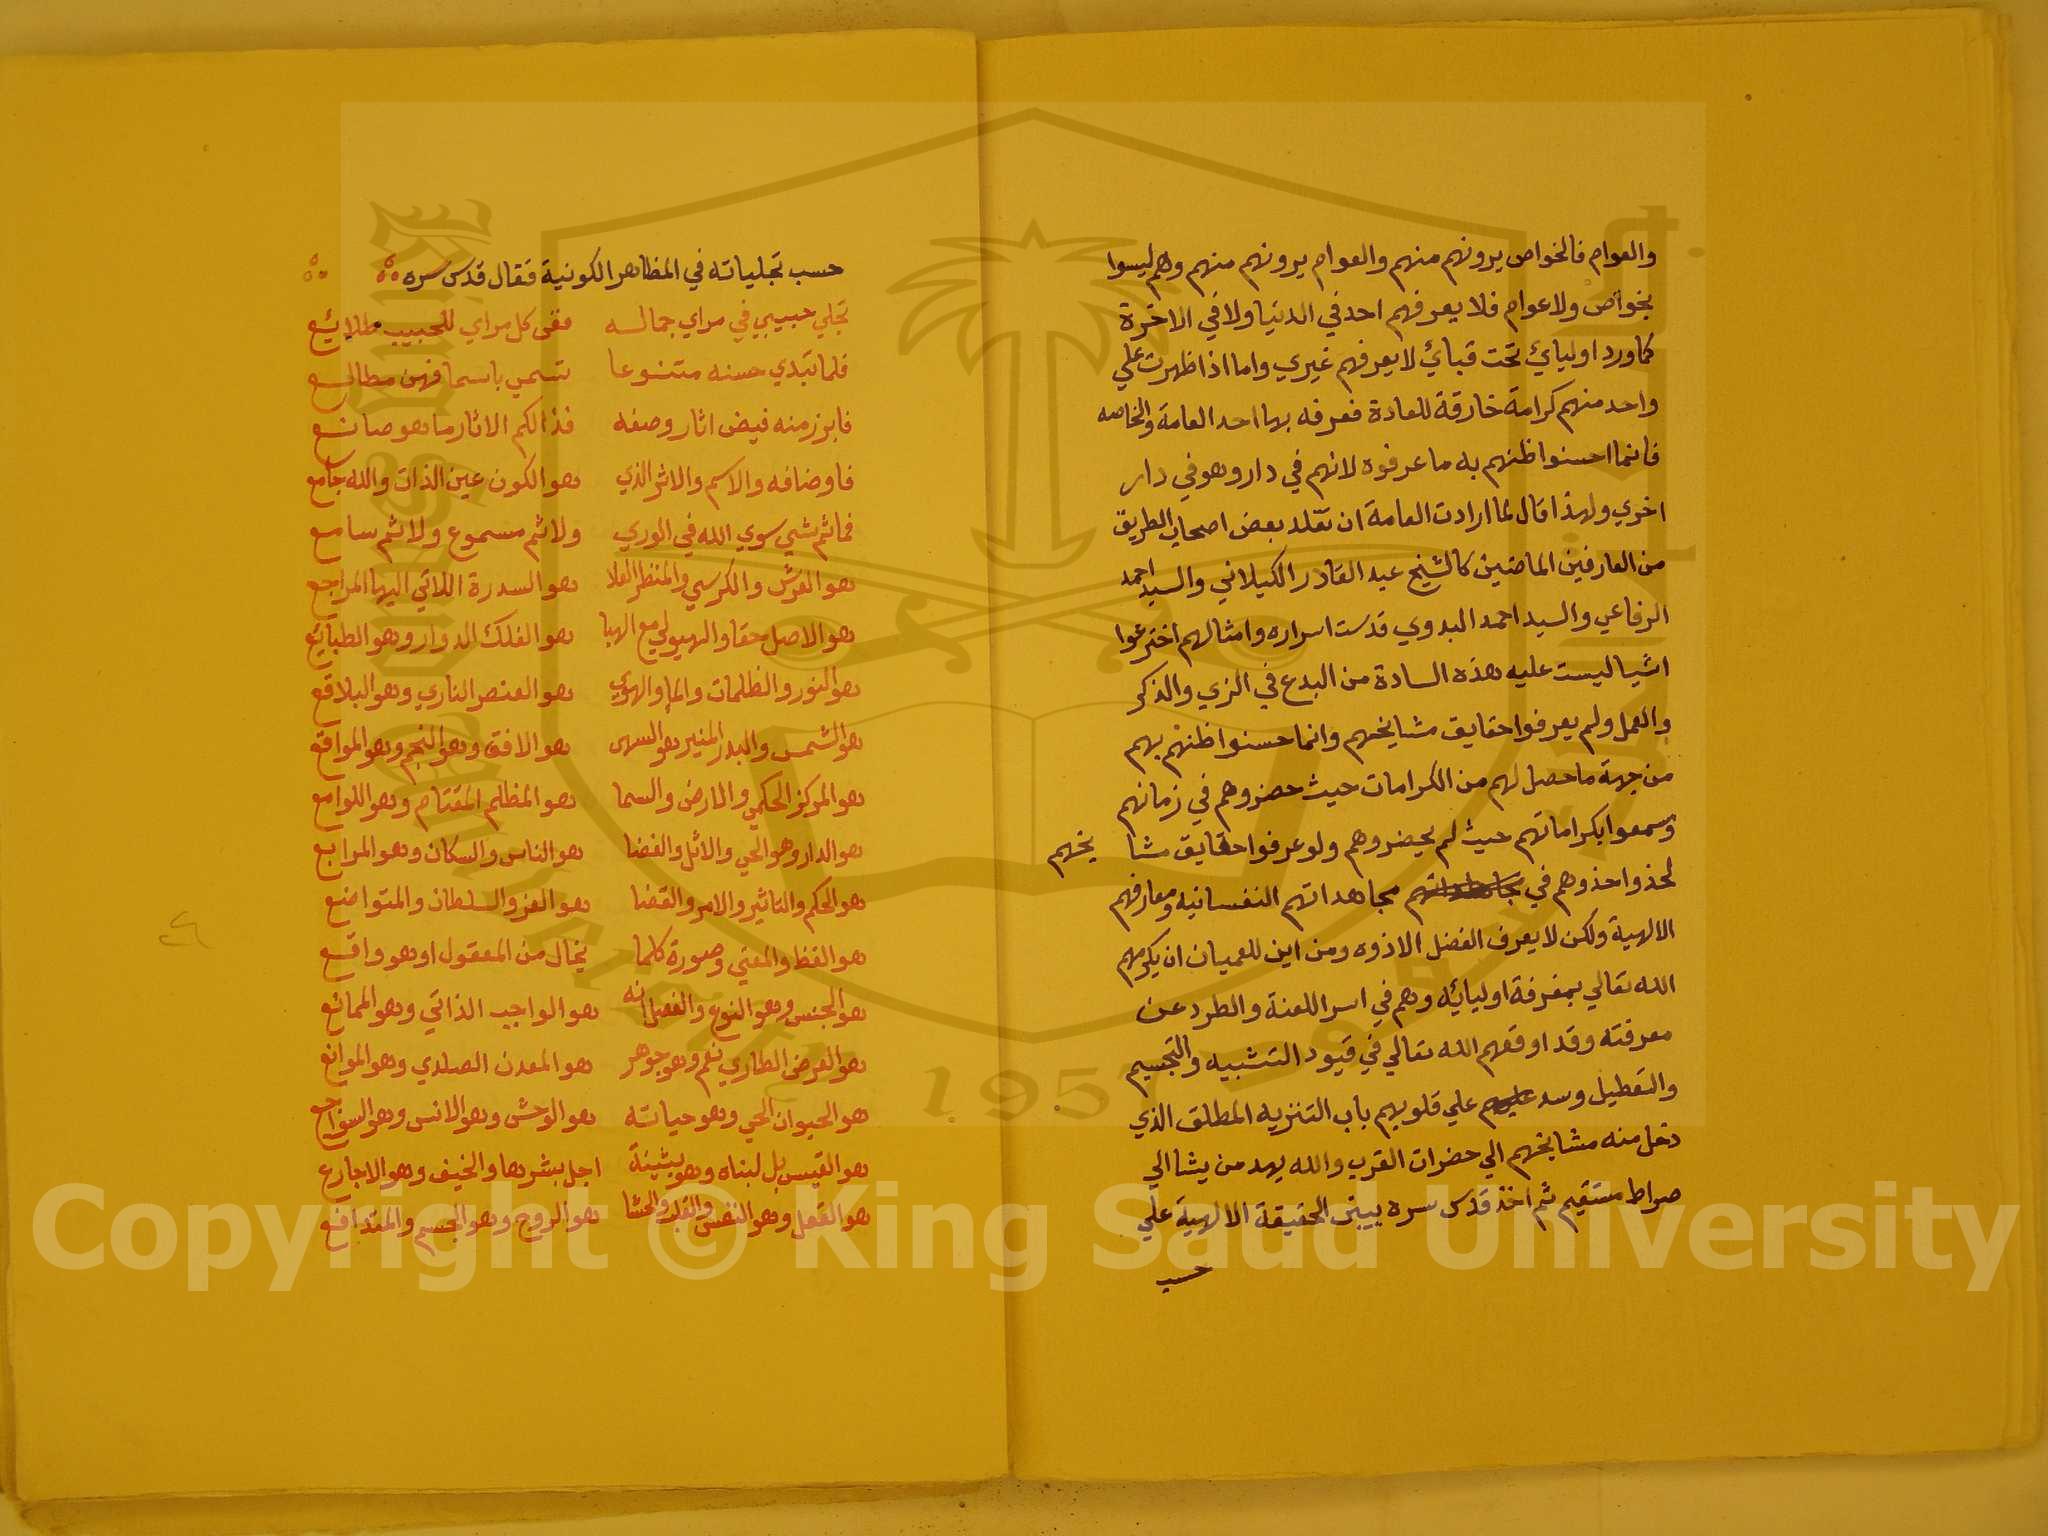 والعوام فالخواص يرونهم منهم والعوام يرونهم منهم وهم ليسوا
بخواص ولا عوام فلا يعرفهم احد في الدنيا ولا في الاخرة
كما ورد اوليائ تحت قبائ لا يعرفهم غيري واما اذا ظهرت علي
واحد منهم كرامة خارقة للعادة فعرفه بها احد العامة والخاصه
فانما احسنوا ظنهم به ما عرفوه لانهم في دار وهو في دار
اخري ولهذا قال لما ارادت العامة ان تقلد بعض اصحاب الطريق
من العارفين الماضين كالشيخ عبد القادر الكيلاني والسيد احمد
الرفاعي والسيد احمد البدوي قدست اسراره وامثالهم اخترعوا
اشيا ليست عليه هذه السادة من البدع في الزي والذكر
والعمل ولم يعرفوا حقايق مشايخهم وانما حسنوا ظنهم بهم
من جهة ما حصل لهم من الكرامات حيث حضروهم في زمانهم
وسمعوا بكراماتهم حيث لم يحضروهم ولو عرفوا حقايق مشا يخهم
لحذوا حذوهم في مجاهداتهم النفسانيه ومعارفهم
الالهية ولكن لا يعرف الفضل الا ذوه ومن اين للعميان ان يكرمهم
الله تعالي بمعرفة اوليائه وهم في اسر اللعنة والطرد عن
معرفته وقد اوقعهم الله تعالي في قيود التشبيه والتجسيم
والتعطيل وسد علي قلوبهم باب التنزيه المطلق الذي
دخل منه مشايخهم الي حضرات القرب والله يهد من يشا الي
صراط مستقيم ثم اخذ قدس سره يبين الحقيقة الالهية علي
حسب
حسب تجلياته في المظاهر الكونية فقال قدس سره
تجلي حبيبي في مراي جماله ففي كل مراي للحبيب طلايع
فلما تبدي حسنه متنوعا تسمي باسما فهن مطالع
فابرز منه فيض اثار وصفه فذالكم الاثار ما هو صانع
فاوصافه والاسم والاثر الذي هو الكون عين الذات والله جامع
فما ثم شي سوي الله في الوري ولا ثم مسموع ولا ثم سامع
هو العرش والكرسي والمنظر العلا هو السدرة اللاتي اليها المراجع
هو الاصل حقا والهيولي مع الهبا هو الفلك الدوار وهو الطبايع
هو النور والظلمات والما والهوي هو العنصر الناري وهو البلاقع
هو الشمس والبدر المنير هو السهي هو الافق وهو النجم وهو المواقع
هو المركز الحكمي والارض والسما هو المظلم المقتام وهو اللوامع
هو الدار وهو الحي والاثل والغضا هو الناس والسكان وهو المرابع
هو الحكم والتاثير والامر والقضا هو العز والسلطان والمتواضع
هو الفظ والمعني وصورة كلما يخال من المعقول او هو واقع
هو الجنس وهو النوع والفصل انه هو الواجب الذاتي وهو الممانع
هو العرض الطاري نعم وهو جوهر هو المعدن الصلدي وهو الموانع
هو الحيوان الحي وهو حياته هو الوحش وهو الانس وهو السواجع
هو القيس بل لبناه وهو بثينة اجل بشرها والخيف وهو الاجارع
هو العقل وهو النفس والقلب والحشا هو الروح وهو الجسم والمتدافع
Copyright © King Saud University
1957